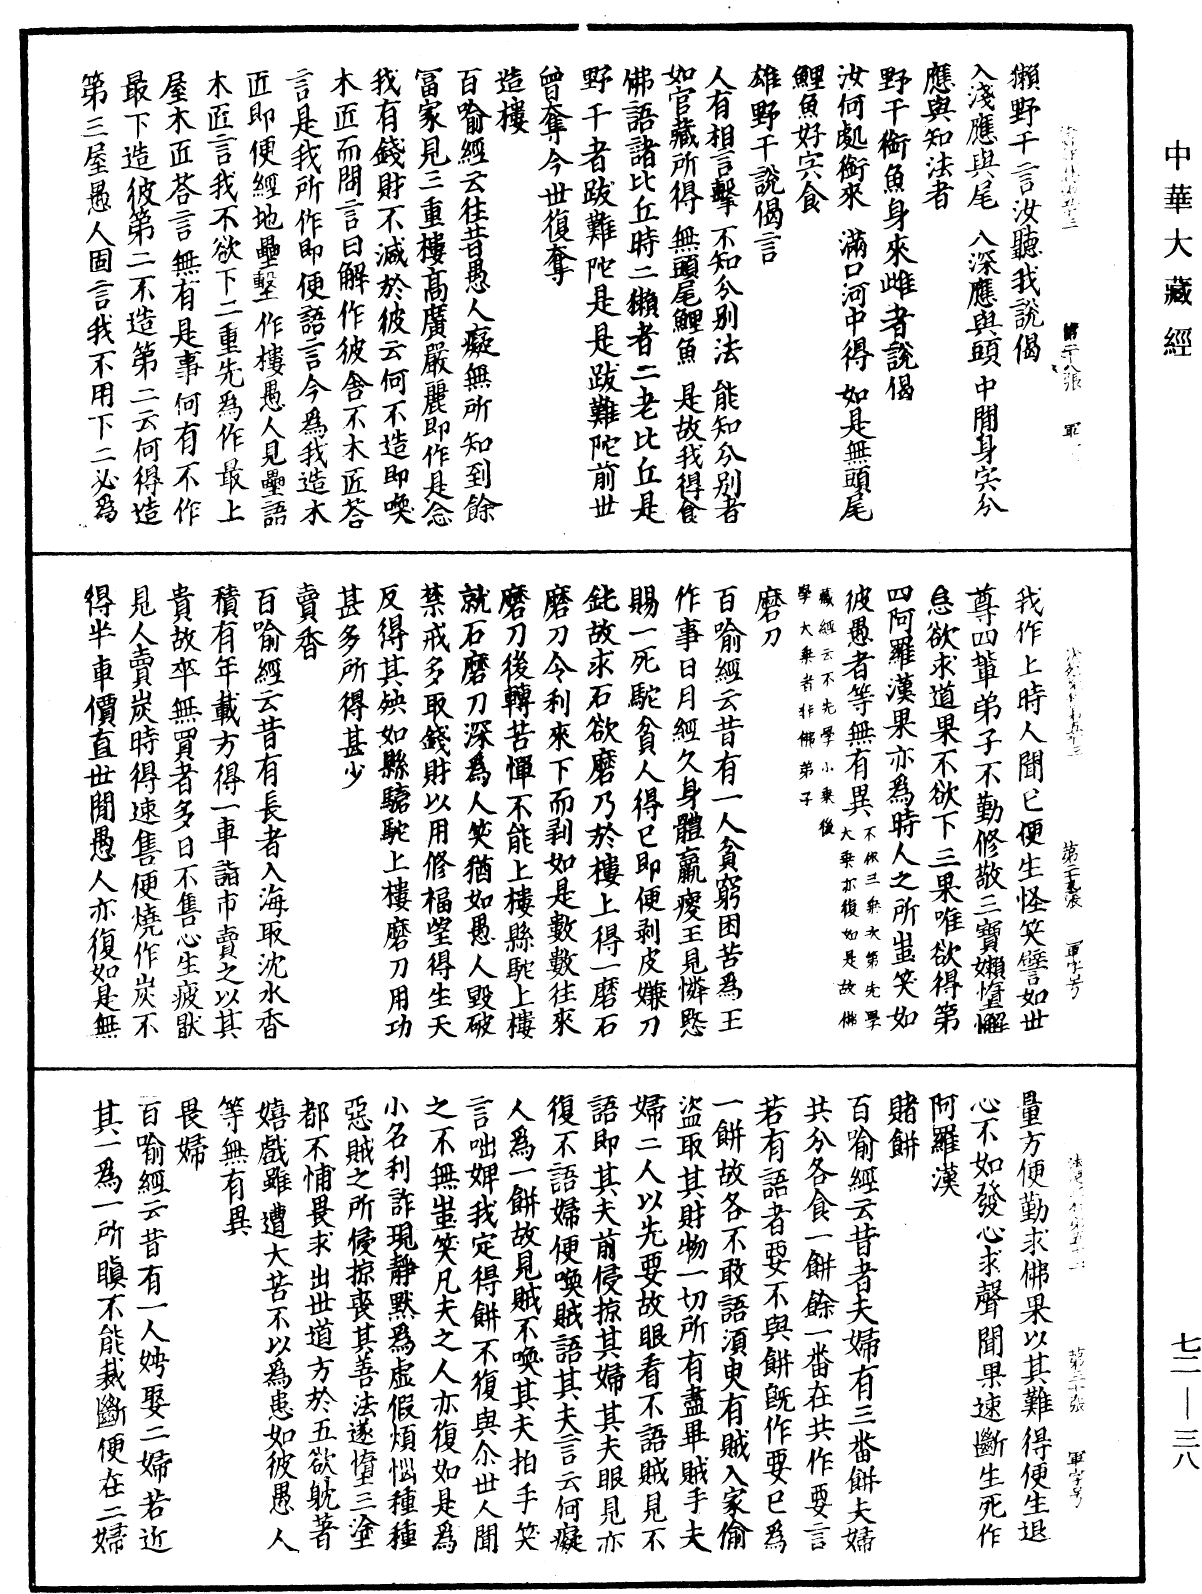 中華大藏經
獺野干言汝聽我說偈
入淺應與尾　入深應與頭　中閒身宍分
應與知法者
野干銜魚身來雌者說偈
汝何處銜來　滿口河中得　如是無頭尾
鯉魚好宍食
雄野干說偈言
人有相言擊　不知分別法　能知分別者
如官藏所得　無頭尾鯉魚　是故我得食
佛語諸比丘時二獺者二老比丘是
野干者跋難陀是是跋難陀前世
曾奪今世復奪
造樓
百喻經云往昔愚人癡無所知到餘
富家見三重樓高廣嚴麗即作是念
我有錢財不減於彼云何不造即喚
木匠而問言曰解作彼舍不木匠荅
言是我所作即便語言今爲我造木
匠即便經地壘墼作樓愚人見壘語
木匠言我不欲下二重先爲作最上
屋木匠荅言無有是事何有不作
最下造彼第二不造第二云何得造
第三屋愚人固言我不用下二必爲
第二十九張　軍字号
我作上時人聞已便生怪笑譬如世
尊四輩弟子不勤修敬三寶嬾憻懈
怠欲求道果不欲下三果唯欲得第
四阿羅漢果亦爲時人之所蚩笑如
彼愚者等無有異不依三乘次第先學大乘亦復如是故佛
藏經云不先學小乘後學大乘者非佛弟子
磨刀
百喻經云昔有一人貧窮困苦爲王
作事日月經久身體羸瘦王見憐愍
賜一死駝貧人得已即便剥皮嫌刀
鈍故求石欲磨乃於樓上得一磨石
磨刀令利來下而剥如是數數往來
磨刀後轉苦憚不能上樓縣駝上樓
就石磨刀深爲人笑猶如愚人毀破
禁戒多取錢財以用修福望得生天
反得其殃如縣駱駝上樓磨刀用功
甚多所得甚少
賣香
百喻經云昔有長者入海取沈水香
積有年載方得一車詣市賣之以其
貴故卒無買者多日不售心生疲猒
見人賣炭時得速售便燒作炭不
得半車價直世閒愚人亦復如是無
第三十張　軍字号
量方便勤求佛果以其難得便生退
心不如發心求聲聞果速斷生死作
阿羅漢
賭餅
百喻經云昔者夫婦有三畨餅夫婦
共分各食一餅餘一畨在共作要言
若有語者要不與餅旣作要已爲
一餅故各不敢語須臾有賊入家偷
盜取其財物一切所有盡畢賊手夫
婦二人以先要故眼看不語賊見不
語即其夫前侵掠其婦其夫眼見亦
復不語婦便喚賊語其夫言云何癡
人爲一餅故見賊不喚其夫拍手笑
言咄婢我定得餅不復與尒世人聞
之不無蚩笑凡夫之人亦復如是爲
小名利詐現靜默爲虛假煩惱種種
惡賊之所侵掠喪其善法遂墮三塗
都不怖畏求出世道方於五欲躭著
嬉戲雖遭大苦不以爲患如彼愚人
等無有異
畏婦
百喻經云昔有一人娉娶二婦若近
其一爲一所瞋不能裁斷便在二婦
七二—三八